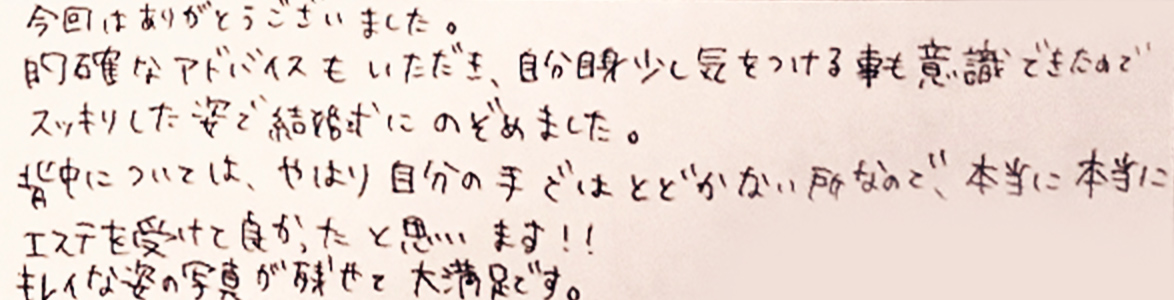 今回はありがとうございました。
的確なアドバイスもいただき、自分自身少し気をつける事も意識できたので
スッキリした姿で結婚式にのぞめました。
背中については、やはり自分の手ではとどかない所なので、本当に本当に
エステを受けて良かったと思います!!
キレイな姿の写真が残せて大満足です。